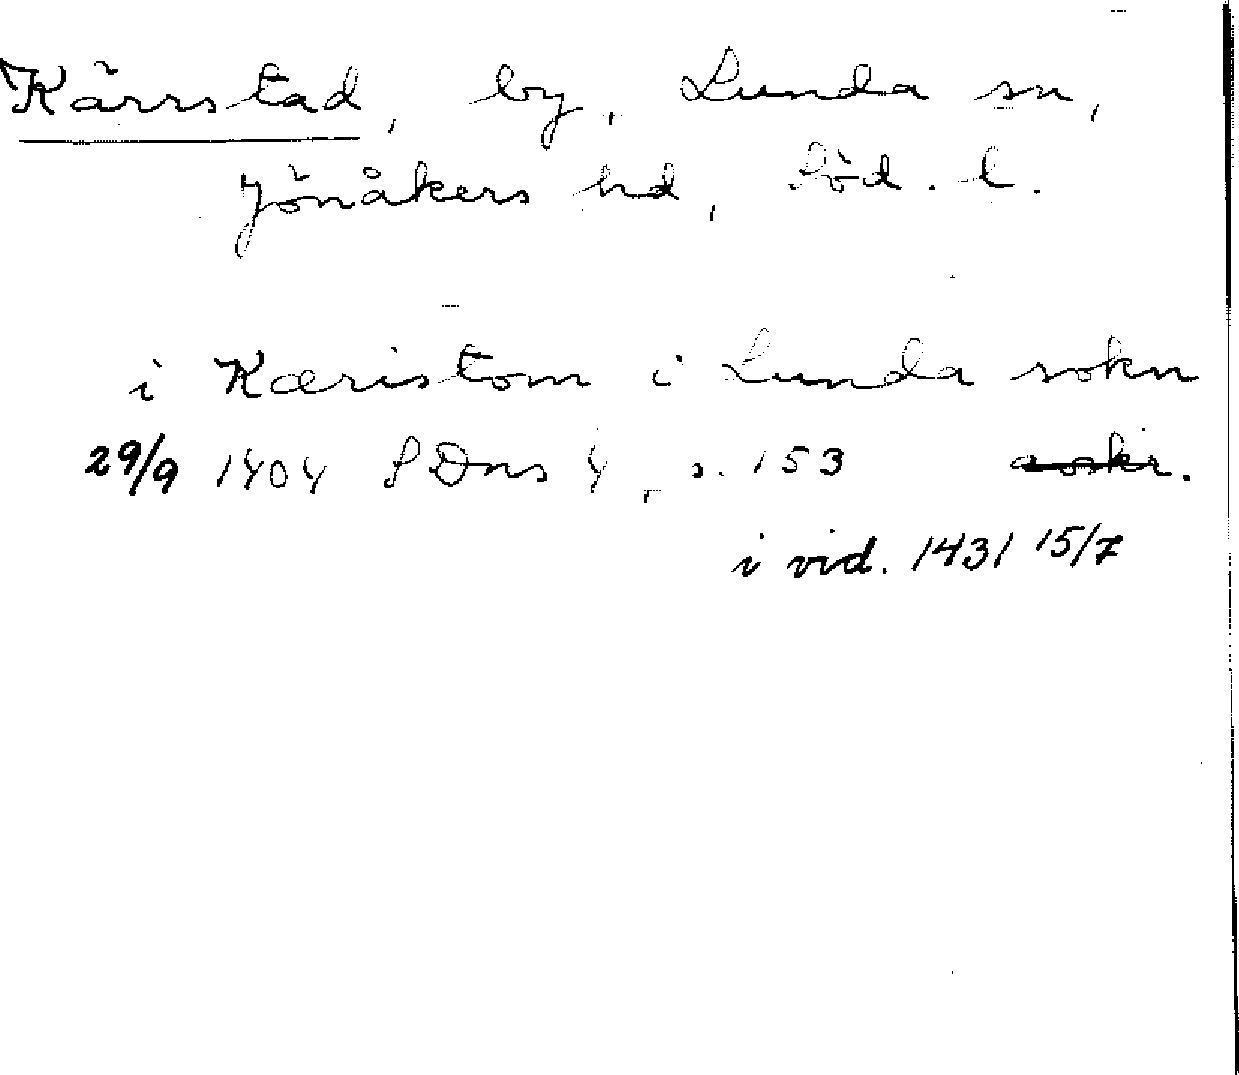 Kärrstad, by, Lunda sn,
Jönåkers hd, Söd. l.
i Kæristom i Lunda sokn
29/9 1404 SDns 4, s. 153 avskr.
i vid. 1431 15/7